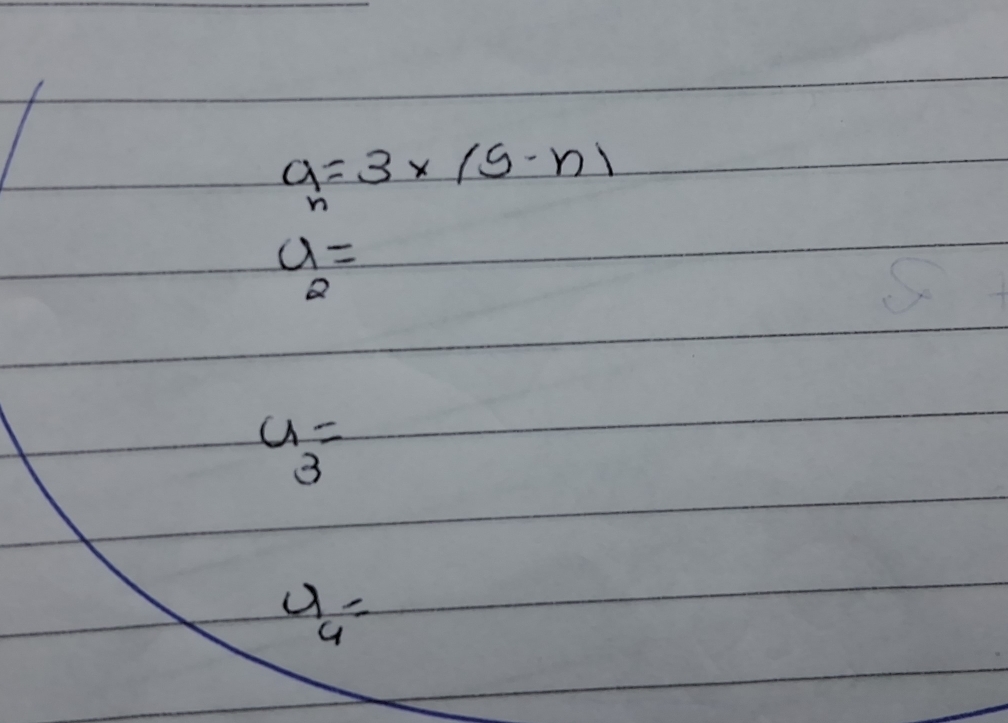 a_n = 3 × (5 - n)
a_2 =
a_3 =
a_4 =